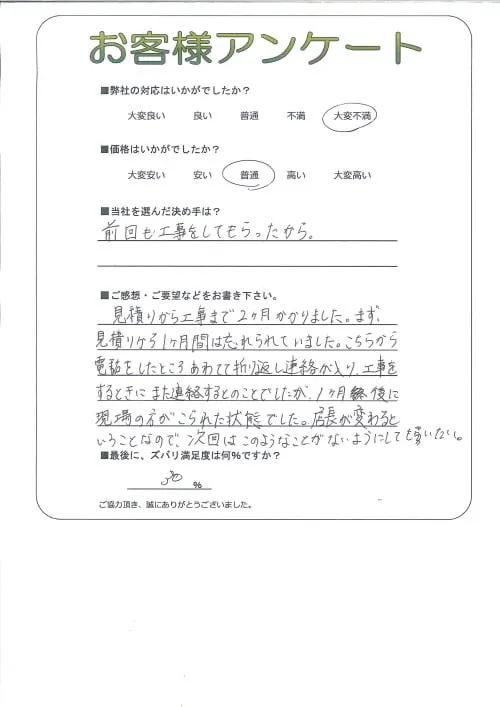 お客様アンケート
■弊社の対応はいかがでしたか？
大変良い 良い 普通 不満 大変不満
■価格はいかがでしたか？
大変安い 安い 普通 高い 大変高い
■当社を選んだ決め手は？
前回も工事をしてもらったから。
■ご感想・ご要望などをお書き下さい。
見積りから工事まで2ヶ月かかりました。まず、
見積りから1ヶ月間は忘れられていました。こちらから
電話をしたところあわてて折り返し連絡が入り、工事を
するときにまた連絡するとのことでしたが、1ヶ月後に
現場の方がこられた状態でした。店長が変わると
いうことなので、次回はこのようなことがないようにしても貰いたい。
■最後に、ズバリ満足度は何％ですか？
%
ご協力頂き、誠にありがとうございました。